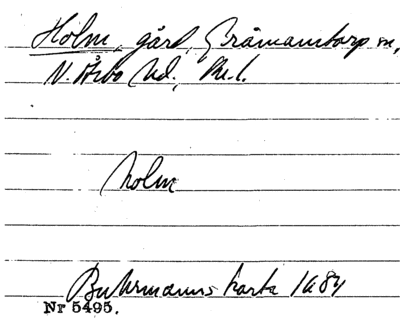 Holm, gård, Gråmanstorp sn,
N. Åsbo hd., Kr. l.
holm
Buhrmanns karta 1684
Nr 5495.